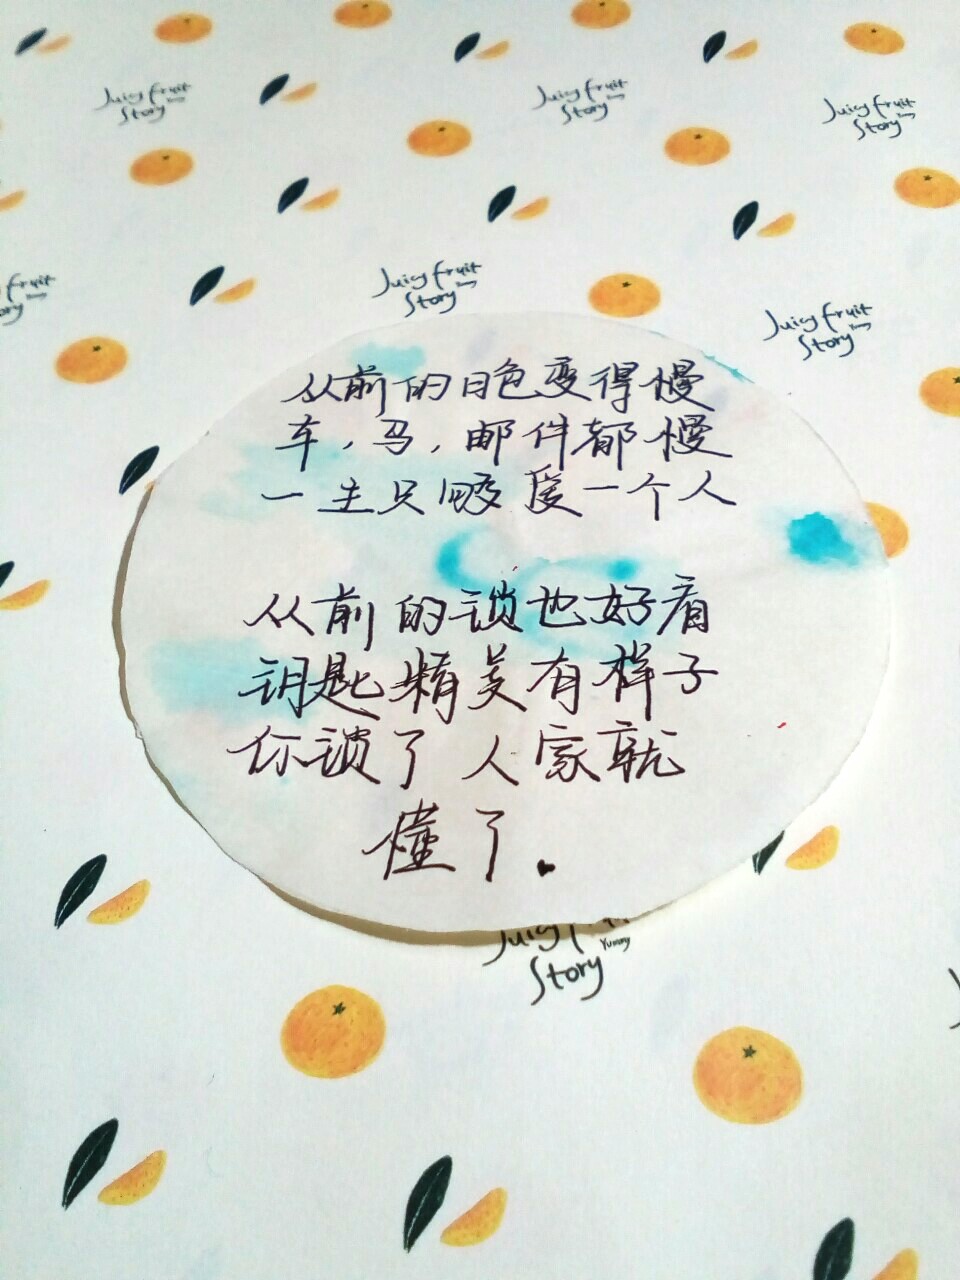 Juicy fruit
Yummy
Story
Juicy fruit
Yummy
Story
Juicy fruit
Yummy
Story
Juicy fruit
Yummy
Story
Juicy fruit
Yummy
Story
从前的日色变得慢
车,马,邮件都慢
一生只够爱一个人
从前的锁也好看
钥匙精美有样子
你锁了人家就
懂了.
Juicy
Yummy
Story